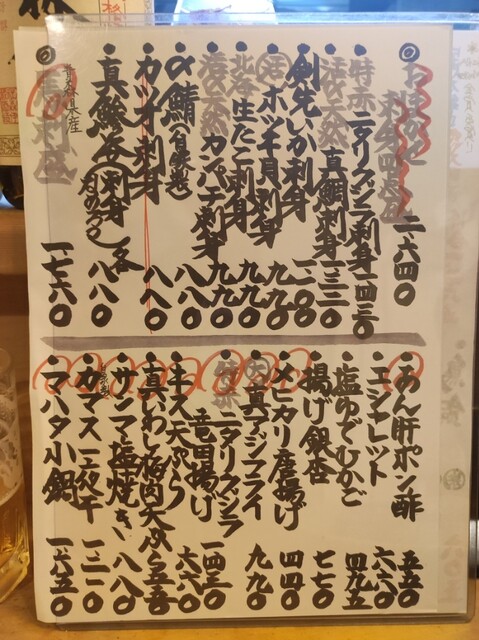 ◎おまかせ刺身四点盛 二、六四〇
・特赤ニタリクジラ刺身 一、四三〇
・活〆天然真鯛刺身 一、三二〇
・剣先いか刺身 一、一〇〇
・活ホッキ貝刺身 九九〇
・北海生たこ刺身 九九〇
・活〆天然カンパチ刺身 九九〇
・〆鯖 八八〇
・カツオ刺身 八八〇
・真鯵 刺身 なめろう 各八八〇
◎青森県産馬刺盛 一、七六〇
・あん肝ポン酢 五五〇
・エシャレット 六六〇
・塩ゆでむかご 四九五
・揚げ銀杏 七七〇
・メヒカリ唐揚げ 四四〇
・真アジフライ 九九〇
・特赤ニタリクジラ竜田揚げ 一、四三〇
・キス天ぷら 六六〇
・真いわし梅肉天ぷら 五五〇
・サンマ塩焼き 八八〇
・カマス一夜干 一、二一〇
・マハタ小鍋 一、六五〇